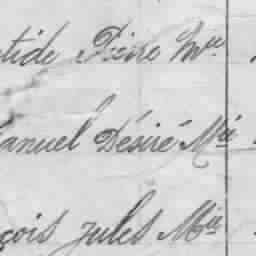 tide Pierre Mce
anuel Désiré Mié
çois Jules Mis